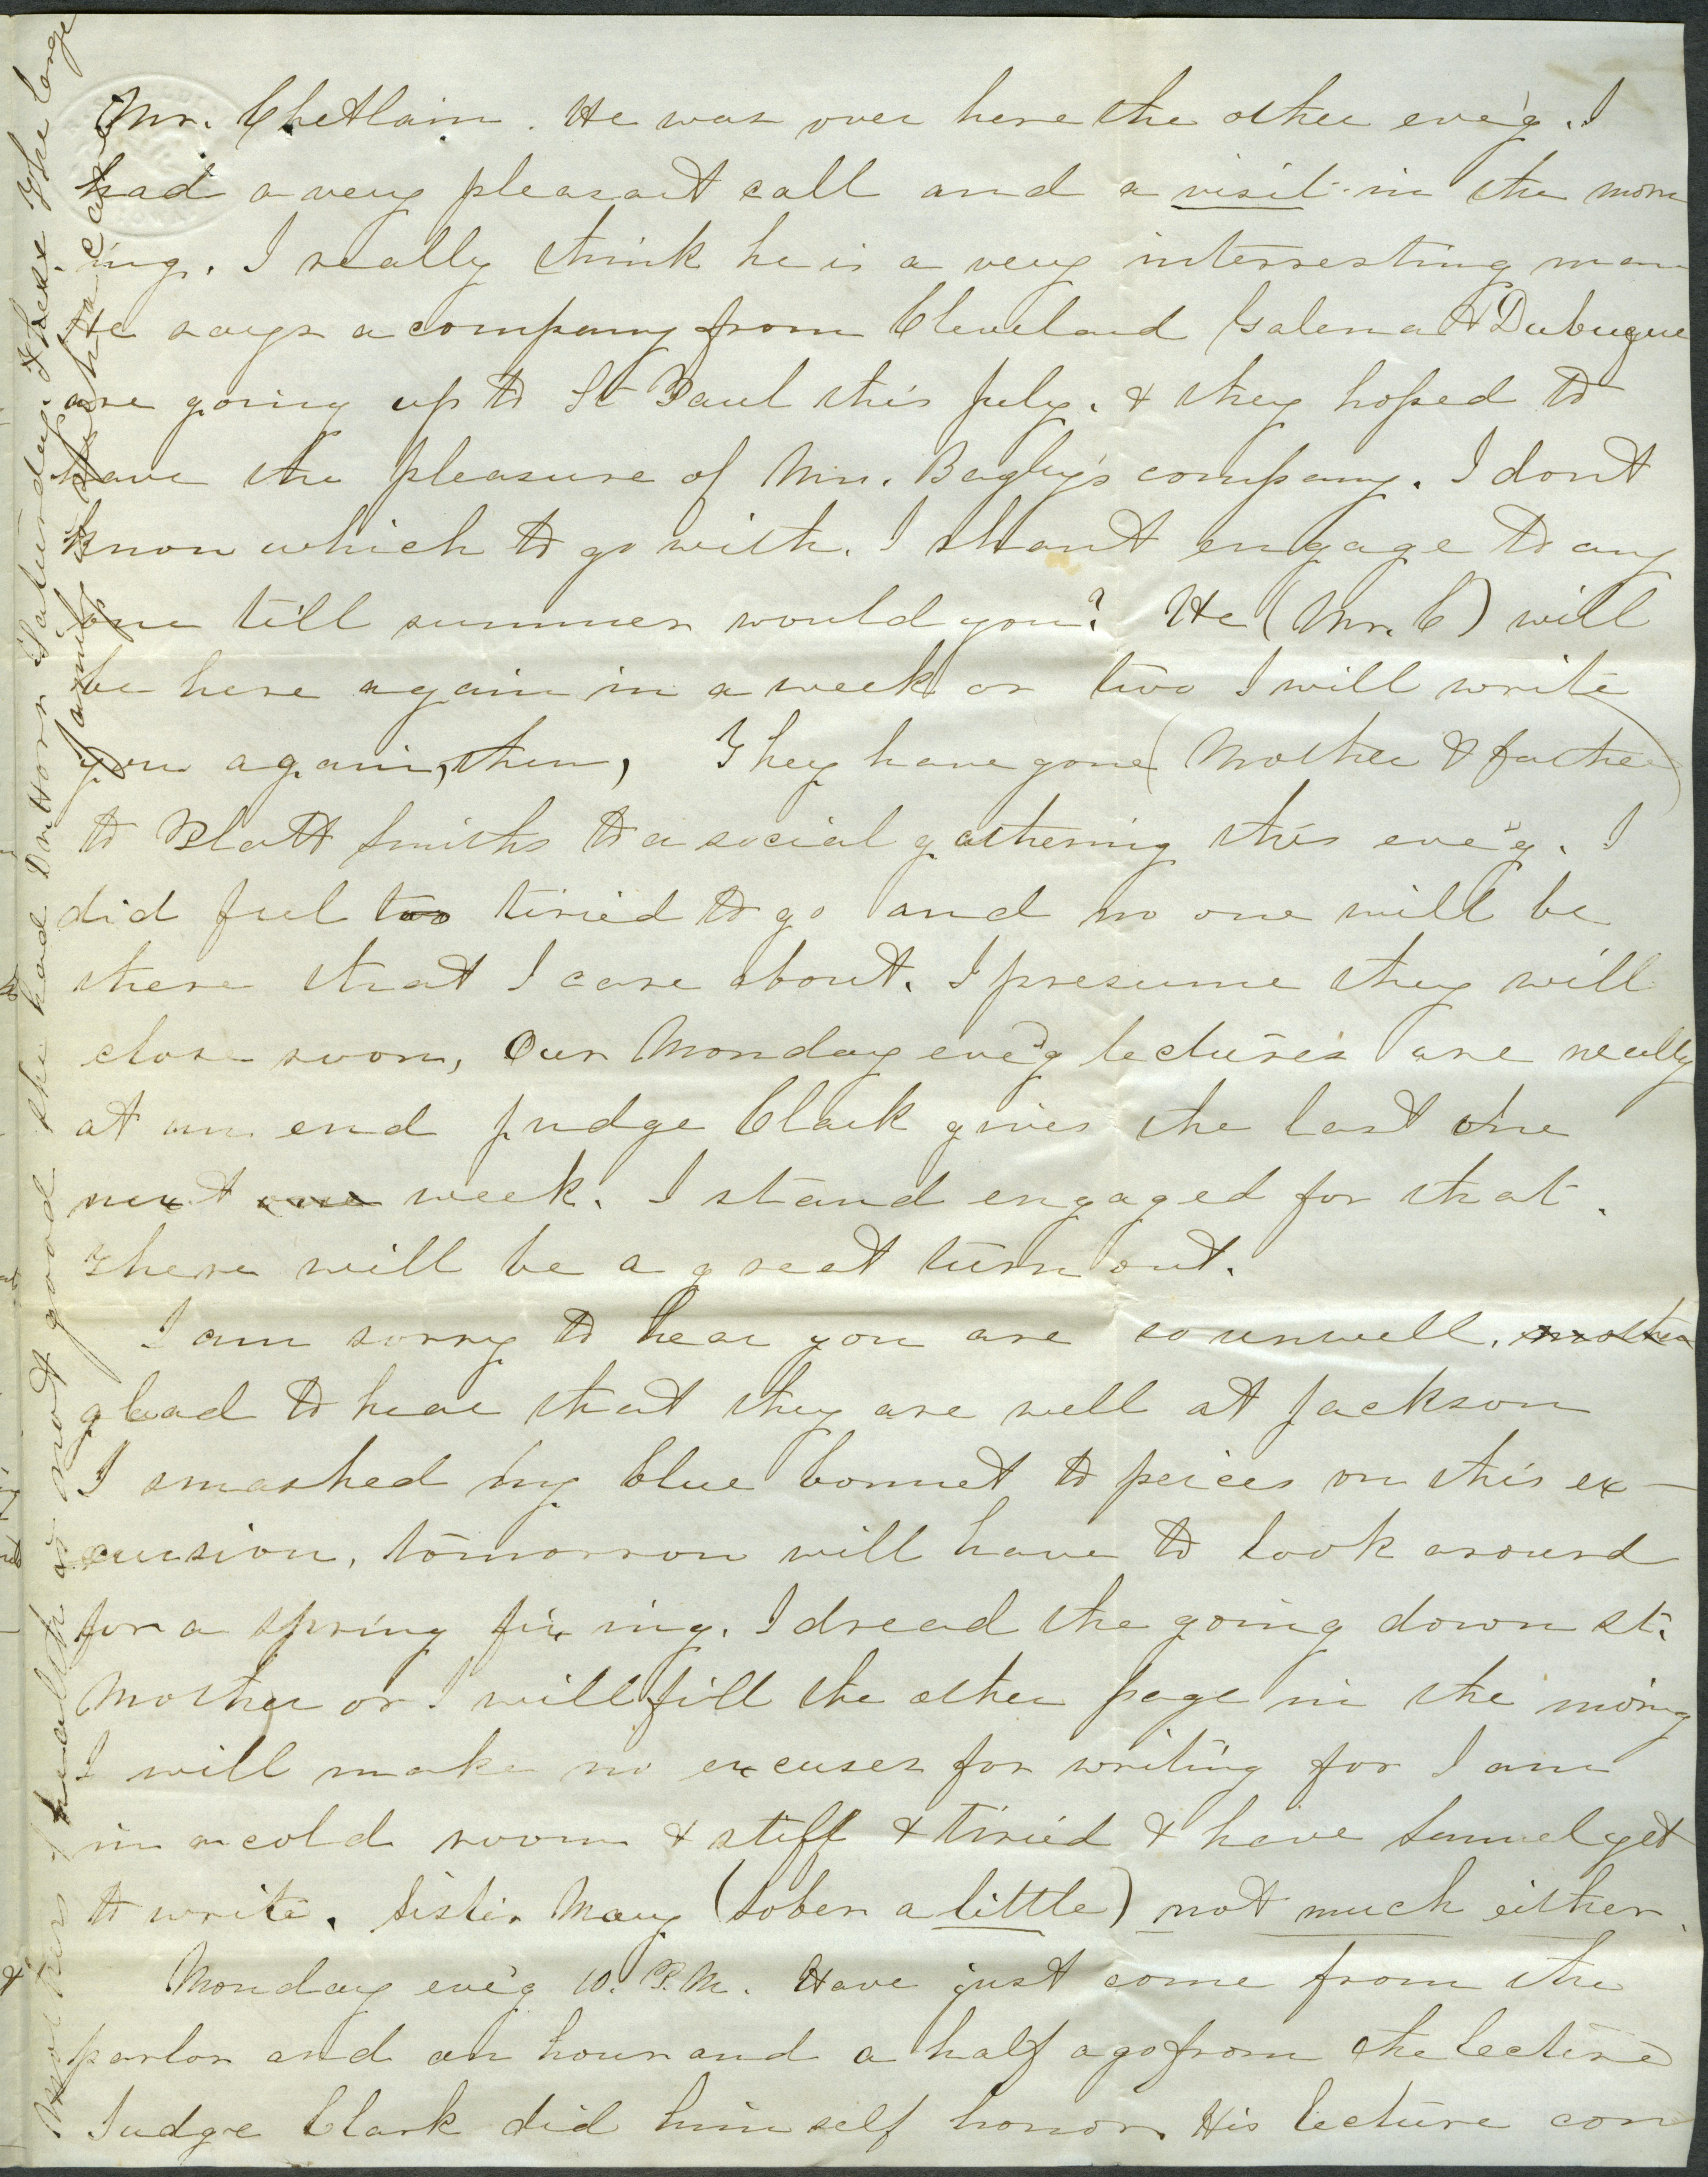 Mr. Chetlain. He was over here the other eve'g. I
had a very pleasant call and a visit in the morn
ing. I really think he is a very interresting man
He says a company from Cleveland Galena & Dubuque
are going up to St Paul this July. & they hoped to
have the pleasure of Mrs. Bagley's company. I dont
know which to go with. I shant engage to any
one till summer would you? He (Mr. C) will
be here again in a week or two I will write
you again, then, They have gone (Mother & father)
to Platt Smiths to a social gathering this eve'g. I
did feel too tiried to go and no one will be
there that I care about. I presume they will
close soon, Our Monday eve'g lectures are really
at an end Judge Clark gives the last one
next one week. I stand engaged for that.
There will be a great turn out.
I am sorry to hear you are so unwell. mother
glad to hear that they are well at Jackson
I smashed my blue bonnet to peices on this ex-
cursion, tomorrow will have to look around
for a spring fixing. I dread the going down st.
Mother or I will fill the other page in the mo'ng
I will make no excuses for writing for I am
in a cold room & stiff & tiried & have Samuel yet
to write. Sister Mary (sober a little) not much either.
Monday eve'g 10. P.M. Have just come from the
parlor and an hour and a half ago from the lecture
Judge Clark did himself honor. His lecture con
Mothers health is not good she had Dr Horr Saturday. & here The large
family